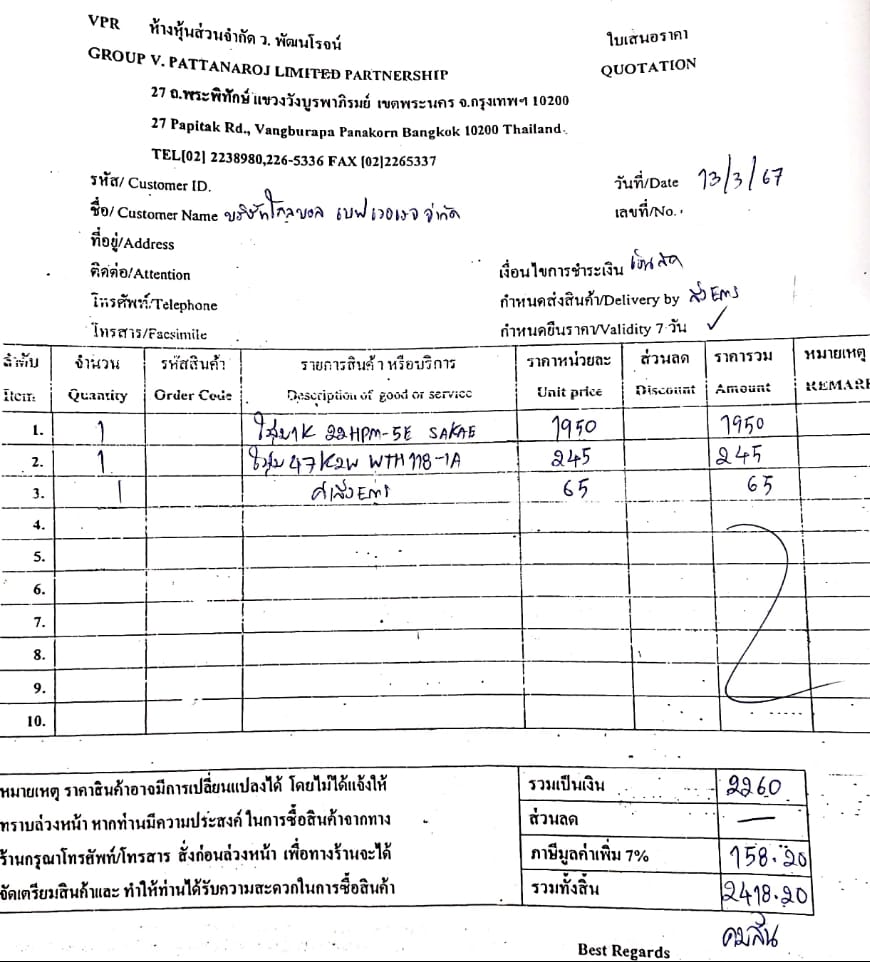 VPR ห้างหุ้นส่วนจำกัด ว. พัฒนโรจน์ ใบเสนอราคา
GROUP V. PATTANAROJ LIMITED PARTNERSHIP QUOTATION
27 ถ.พระพิทักษ์ แขวงวังบูรพาภิรมย์ เขตพระนคร จ.กรุงเทพฯ 10200
27 Papitak Rd., Vangburapa Panakorn Bangkok 10200 Thailand.
TEL[02] 2238980,226-5336 FAX [02]2265337
รหัส/ Customer ID. วันที่/Date 13/3/67
ชื่อ/ Customer Name บริษัทโกลบอล เบฟเวอเรจ จำกัด เลขที่/No.
ที่อยู่/Address
ติดต่อ/Attention เงื่อนไขการชำระเงิน เงินสด
โทรศัพท์/Telephone กำหนดส่งสินค้า/Delivery by ส่ง EMS
โทรสาร/Facsimile กำหนดยืนราคา/Validity 7 วัน ✓
ลำดับ จำนวน รหัสสินค้า รายการสินค้า หรือบริการ ราคาหน่วยละ ส่วนลด ราคารวม หมายเหตุ
Item Quantity Order Code Description of good or service Unit price Discount Amount REMARK
1. 1 1K 22HPM-5E SAKAE 1950 1950
2. 1 47K2W WTH118-1A 245 245
3. 1 ค่าส่ง EMS 65 65
4.
5.
6.
7.
8.
9.
10.
หมายเหตุ ราคาสินค้าอาจมีการเปลี่ยนแปลงได้ โดยไม่ได้แจ้งให้ รวมเป็นเงิน 2260
ทราบล่วงหน้า หากท่านมีความประสงค์ ในการซื้อสินค้าจากทาง ส่วนลด —
ร้านกรุณาโทรศัพท์/โทรสาร สั่งก่อนล่วงหน้า เพื่อทางร้านจะได้ ภาษีมูลค่าเพิ่ม 7% 158.20
จัดเตรียมสินค้าและ ทำให้ท่านได้รับความสะดวกในการซื้อสินค้า รวมทั้งสิ้น 2418.20
คมสัน
Best Regards